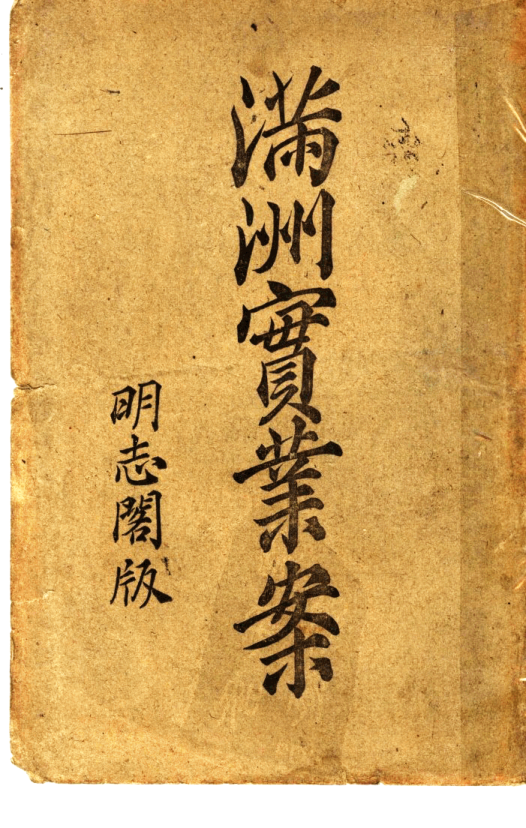 満洲實業案
明志閣版